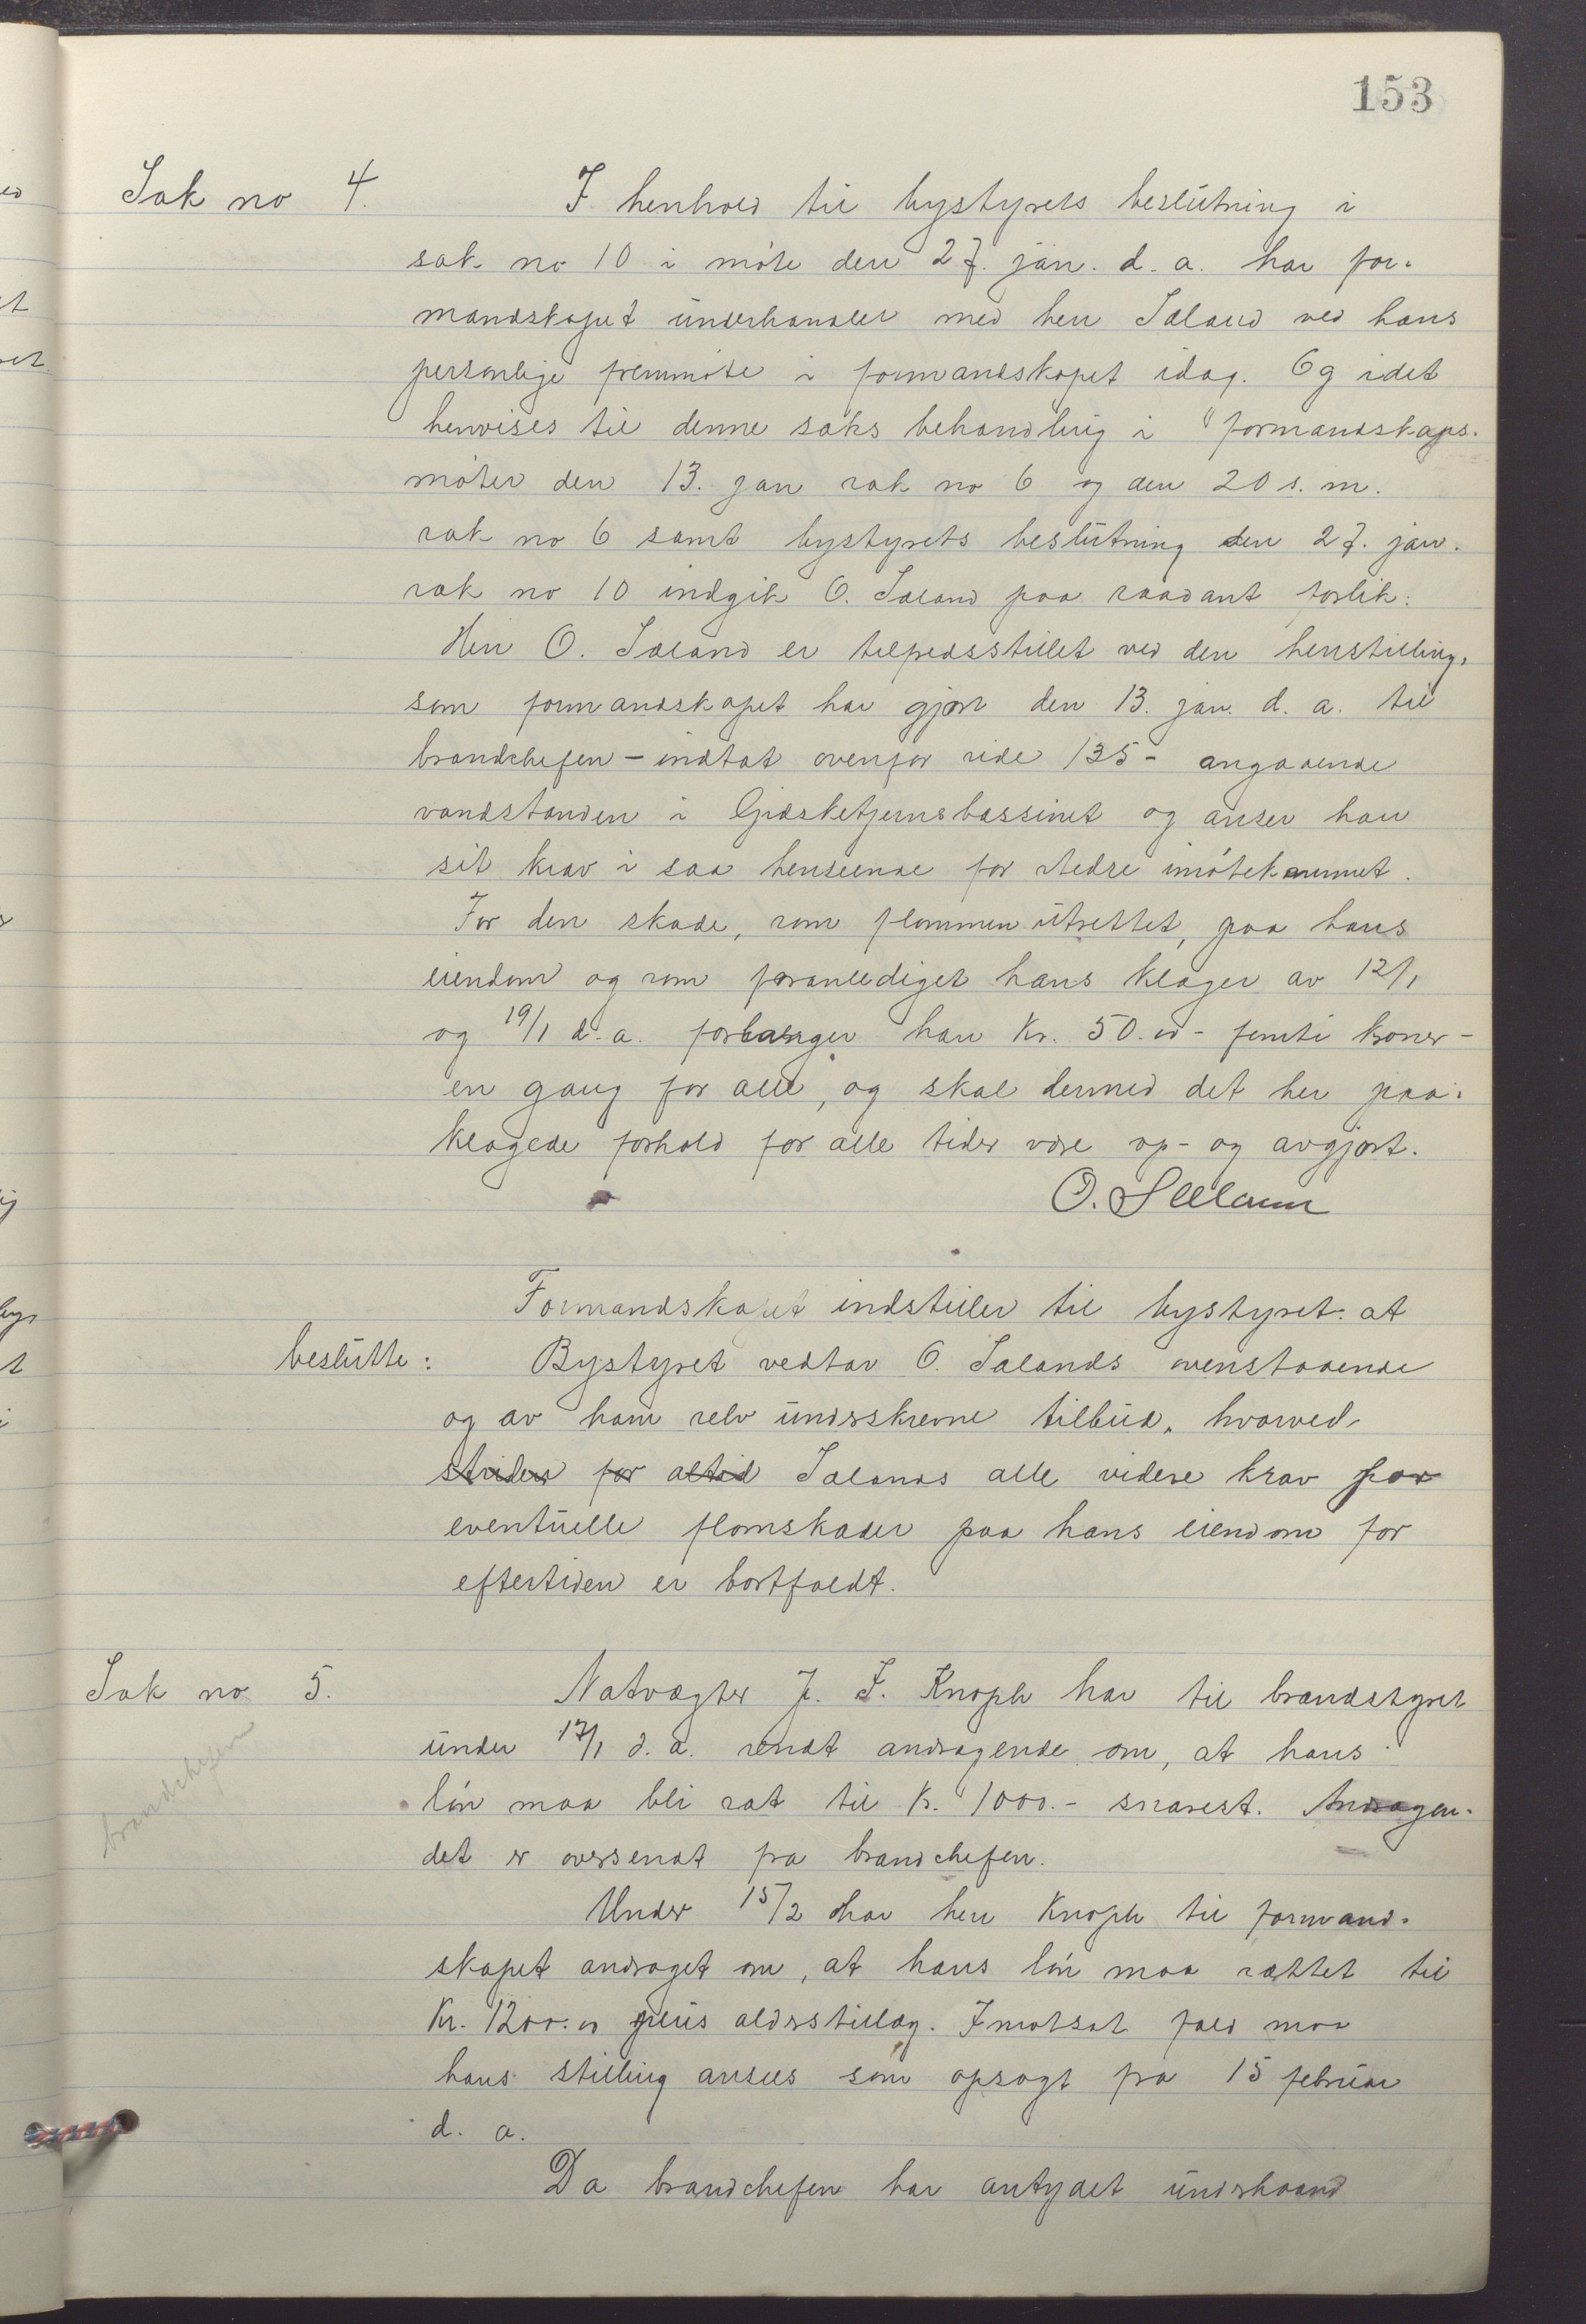 153
Sak no 4. I henhold til bystyrets beslutning i
sak no 10 i møte den 27. jan. d. a. har for-
mandskapet underhandlet med herr Sæland ved hans
personlige fremmøte i formandskapet idag. Og idet
henvises til denne saks behandling i formandskaps-
møter den 13. jan sak no 6 og den 20 s. m.
sak no 6 samt bystyrets beslutning den 27. jan.
sak no 10 indgik O. Sæland paa saadant forlik:
Herr O. Sæland er tilfredsstillet ved den henstilling,
som formandskapet har gjort den 13. jan. d. a. til
brandchefen – indtat ovenfor side 135 – angaaende
vandstanden i Gjæsketjernsbassinet og anser han
sit krav i saa henseende for stedse imøtekommet.
For den skade, som flommen utrettet, paa hans
eiendom og som foranlediget hans klager av 12/1
og 19/1 d. a. forlanger han Kr. 50.00 – femti kroner –
en gang for alle, og skal dermed det her paa-
klagede forhold for alle tider være op- og avgjort.
O. Sæland
Formandskapet indstiller til bystyret: at
beslutte: Bystyret vedtar O. Sælands ovenstaaende
og av ham selv underskrevne tilbud, hvorved
striden for altid Sælands alle videre krav for
eventuelle flomskader paa hans eiendom for
eftertiden er bortfaldt.
Sak no 5. Natvægter J. F. Knoph har til brandstyret
under 17/1 d. a. sendt andragende om, at hans
brandchefen
løn maa bli sat til Kr. 1000.- snarest. Andragen-
det er oversendt fra brandchefen.
Under 15/2 har herr Knoph til formand-
skapet andraget om, at hans løn maa sættet til
Kr. 1200.00 plus alderstillæg. I motsat fald maa
hans stilling ansees som opsagt fra 15 februar
d. a.
Da brandchefen har antydet underhaand